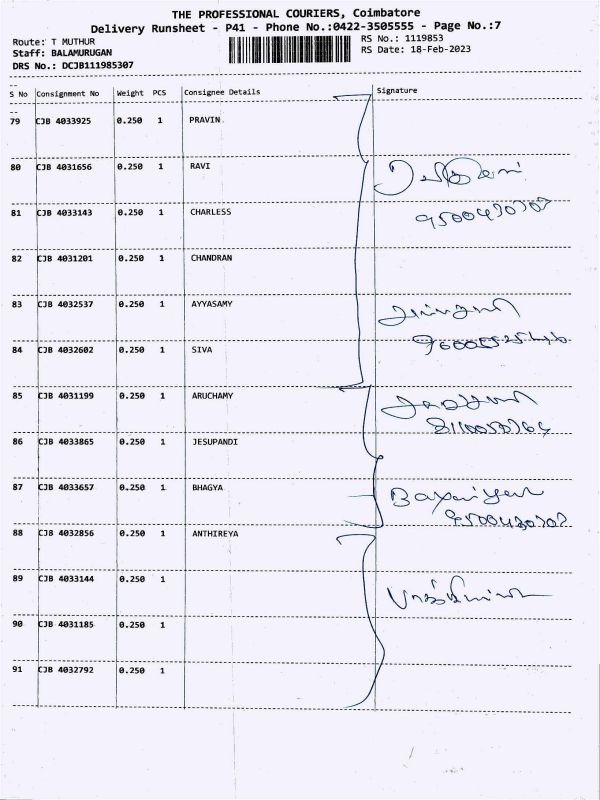 THE PROFESSIONAL COURIERS, Coimbatore
Delivery Runsheet - P41 - Phone No.:0422-3505555 - Page No.:7
Route: T MUTHUR
RS No.: 1119853
Staff: BALAMURUGAN
RS Date: 18-Feb-2023
DRS No.: DCJB111985307
S No Consignment No Weight PCS Consignee Details Signature
79 CJB 4033925 0.250 1 PRAVIN
80 CJB 4031656 0.250 1 RAVI
81 CJB 4033143 0.250 1 CHARLESS
9500430707
82 CJB 4031201 0.250 1 CHANDRAN
83 CJB 4032537 0.250 1 AYYASAMY
84 CJB 4032602 0.250 1 SIVA
85 CJB 4031199 0.250 1 ARUCHAMY
86 CJB 4033865 0.250 1 JESUPANDI
87 CJB 4033657 0.250 1 BHAGYA
9500430707
88 CJB 4032856 0.250 1 ANTHIREYA
89 CJB 4033144 0.250 1
90 CJB 4031185 0.250 1
91 CJB 4032792 0.250 1